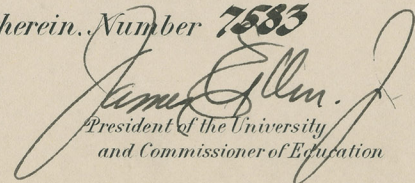 herein. Number 7583
President of the University
and Commissioner of Education